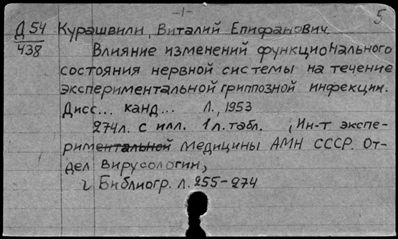 -1-
5
Д 54 Курашвили, Виталий Епифанович.
438
Влияние изменений функционального
состояния нервной системы на течение
экспериментальной гриппозной инфекции.
Дисс... канд... Л., 1953
274л. с илл. 1л. табл. /Ин-т экспе-
риментальной медицины АМН СССР. От-
дел вирусологии/
Библиогр. л. 255-274